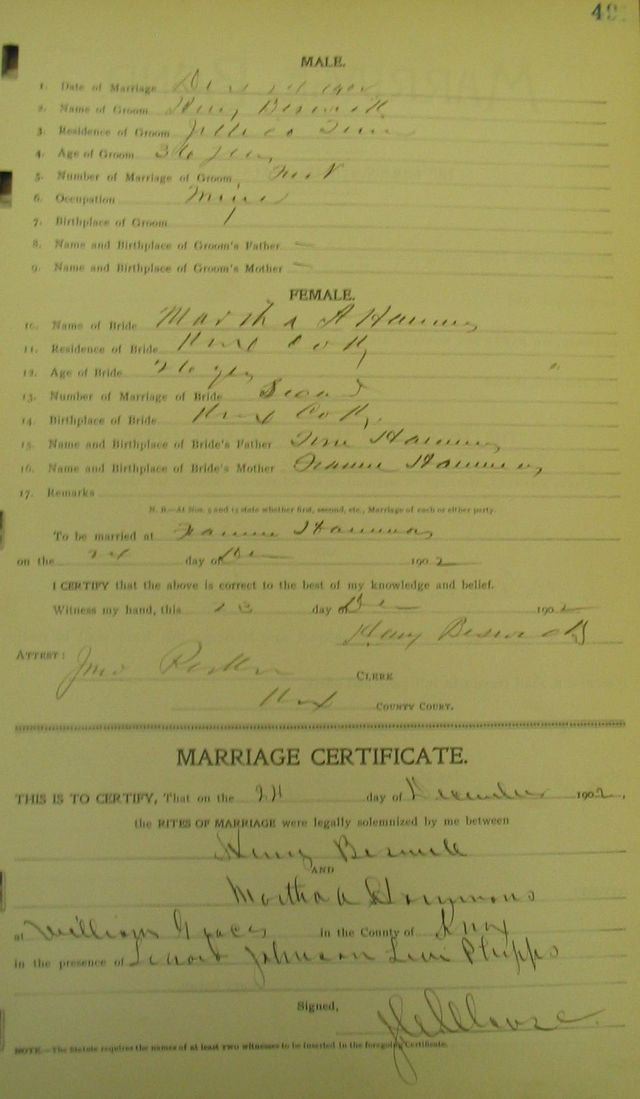 49
MALE.
1. Date of Marriage Dec 24 1902
2. Name of Groom Henry Beswick
3. Residence of Groom Jellico Tenn
4. Age of Groom 36 years
5. Number of Marriage of Groom First
6. Occupation Miner
7. Birthplace of Groom
8. Name and Birthplace of Groom's Father —
9. Name and Birthplace of Groom's Mother —
FEMALE.
10. Name of Bride Martha A Hammons
11. Residence of Bride Knox Co Ky
12. Age of Bride 26 yrs
13. Number of Marriage of Bride Second
14. Birthplace of Bride Knox Co Ky.
15. Name and Birthplace of Bride's Father Hammons
16. Name and Birthplace of Bride's Mother Hammons
17. Remarks
N. B.—At Nos. 5 and 13 state whether first, second, etc., Marriage of each or either party.
To be married at Hammons
on the 24 day of Dec 1902
I CERTIFY that the above is correct to the best of my knowledge and belief.
Witness my hand, this 23 day of Dec 1902
Henry Beswick
ATTEST: Jno CLERK
Knox COUNTY COURT.
MARRIAGE CERTIFICATE.
THIS IS TO CERTIFY, That on the 24 day of December 1902,
the RITES OF MARRIAGE were legally solemnized by me between
Henry
AND
Martha A Hammons
at William in the County of Knox
in the presence of Johnson Levi Phipps
Signed,
NOTE.—The Statute requires the names of at least two witnesses to be inserted in the foregoing Certificate.